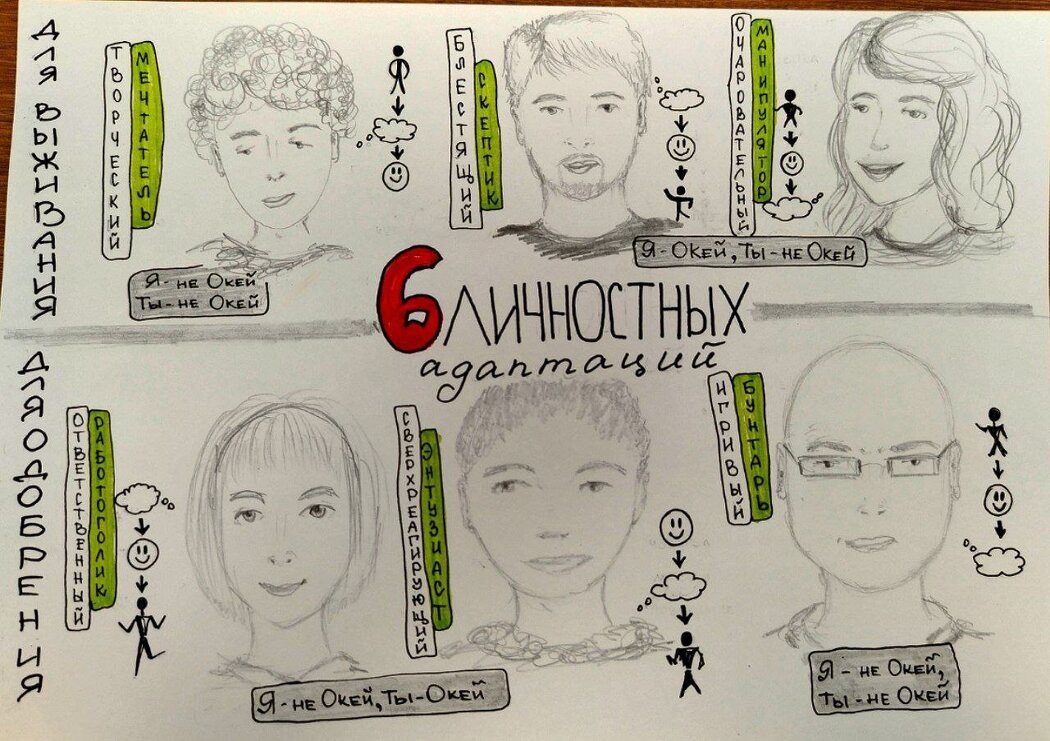 ДЛЯ ВЫЖИВАНИЯ
ТВОРЧЕСКИЙ
МЕЧТАТЕЛЬ
БЛЕСТЯЩИЙ
СКЕПТИК
ОЧАРОВАТЕЛЬНЫЙ
МАНИПУЛЯТОР
Я - не Окей
Ты - не Окей
Я - Окей, Ты - не Окей
6 ЛИЧНОСТНЫХ
адаптаций
ДЛЯ ОДОБРЕНИЯ
ОТВЕТСТВЕННЫЙ
РАБОТОГОЛИК
СВЕРХРЕАГИРУЮЩИЙ
ЭНТУЗИАСТ
ИГРИВЫЙ
БУНТАРЬ
Я - не Окей, Ты - Окей
Я - не Окей,
Ты - не Окей